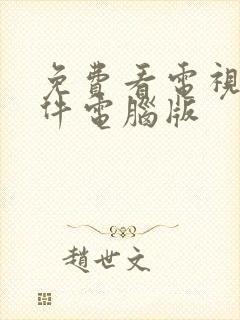 免費看電視
件電腦版
趙世文